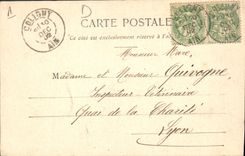 A
D
COLIGNY
10
DEC
AIN
CARTE POSTALE
Ce côté est exclusivement réservé à l'adresse
Monsieur Marc,
Madame et Monsieur Quivogne,
Inspecteur Vétérinaire
Quai de la Charité
Lyon